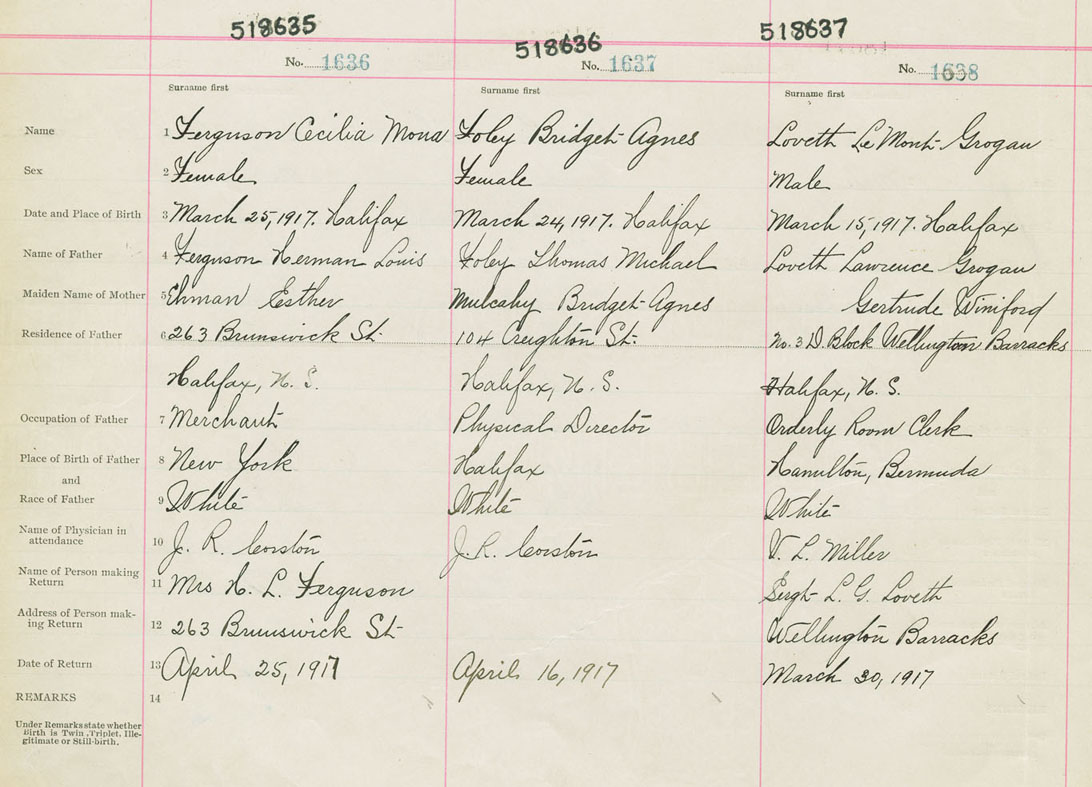 518635 518636 518637
No. 1636 No. 1637 No. 1638
Surname first Surname first Surname first
Name 1 Ferguson Cecilia Mona Foley Bridget Agnes Loveth Le Mont Grogan
Sex 2 Female Female Male
Date and Place of Birth 3 March 25, 1917. Halifax March 24, 1917. Halifax March 15, 1917. Halifax
Name of Father 4 Ferguson Herman Louis Foley Thomas Michael Loveth Lawrence Grogan
Maiden Name of Mother 5 Ehman Esther Mulcahy Bridget Agnes Gertrude Winiford
Residence of Father 6 263 Brunswick St. 104 Creighton St. No. 3 D. Block Wellington Barracks
Halifax, N. S. Halifax, N. S. Halifax, N. S.
Occupation of Father 7 Merchant Physical Director Orderly Room Clerk
Place of Birth of Father 8 New York Halifax Hamilton, Bermuda
and
Race of Father 9 White White White
Name of Physician in
attendance 10 J. R. Corston J. R. Corston V. L. Miller
Name of Person making
Return 11 Mrs H. L. Ferguson Sergt L. G. Loveth
Address of Person mak-
ing Return 12 263 Brunswick St Wellington Barracks
Date of Return 13 April 25, 1917 April 16, 1917 March 30, 1917
REMARKS 14
Under Remarks state whether
Birth is Twin, Triplet, Ille-
gitimate or Still-birth.